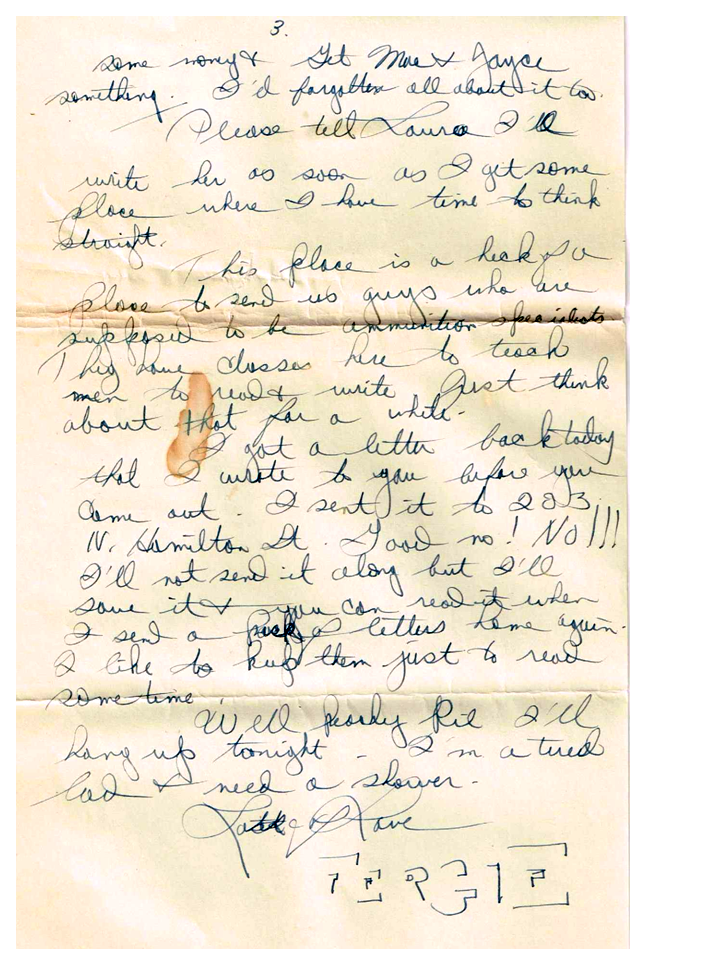 3.
some money & Get Mae & Jayce
something. I'd forgotten all about it to.
Please tell Laura I'll
write her as soon as I get some
place where I have time to think
straight.
This place is a heck of a
place to send us guys who are
supposed to be ammunition specialists
They have classes here to teach
men to read & write Just think
about that for a while.
I got a letter back today
that I wrote to you before you
came out. I sent it to 283
N. Hamilton St. Good no! NO!!!
I'll not send it along but I'll
save it & you can read it when
I send a pack of letters home again.
I like to keep them just to read
sometime
Well I'll
hang up tonight - I'm a tired
lad & I need a shower.
Lots of Love
FERGIE